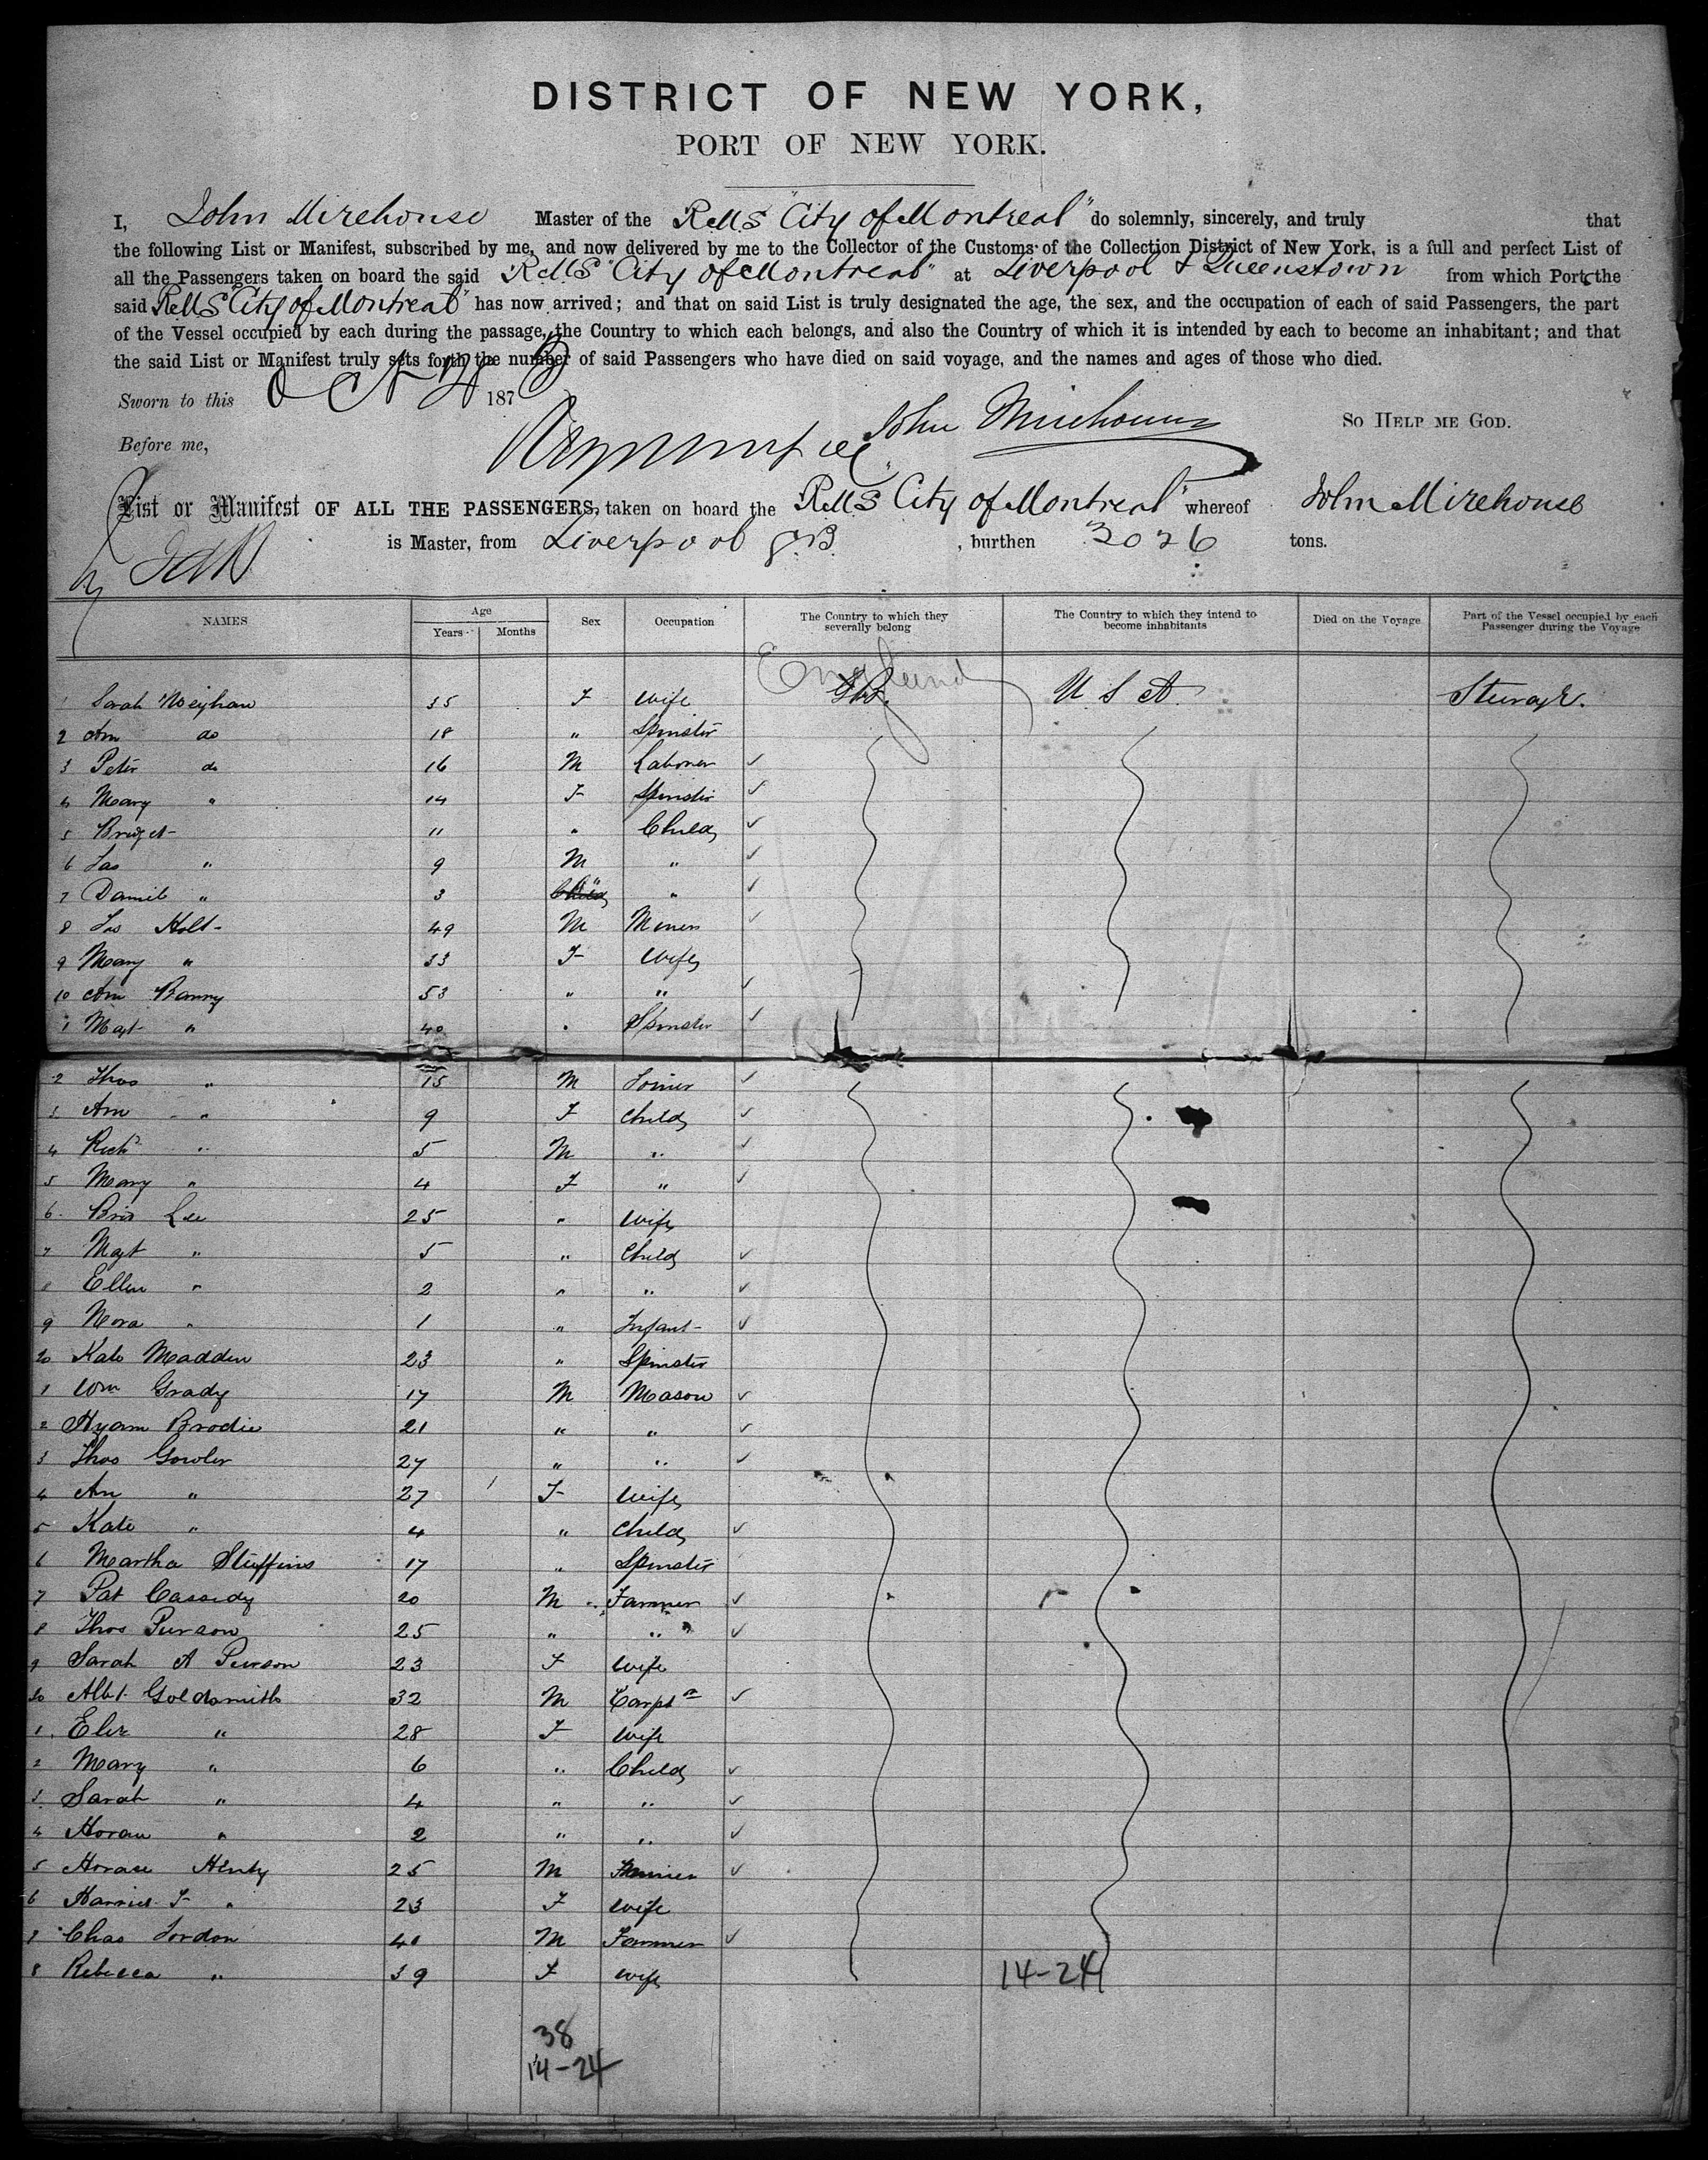 DISTRICT OF NEW YORK,
PORT OF NEW YORK.
I, John Mirehouse Master of the RMS "City of Montreal" do solemnly, sincerely, and truly that
the following List or Manifest, subscribed by me, and now delivered by me to the Collector of the Customs of the Collection District of New York, is a full and perfect List of
all the Passengers taken on board the said RMS "City of Montreal" at Liverpool & Queenstown from which Port the
said RMS "City of Montreal" has now arrived; and that on said List is truly designated the age, the sex, and the occupation of each of said Passengers, the part
of the Vessel occupied by each during the passage, the Country to which each belongs, and also the Country of which it is intended by each to become an inhabitant; and that
the said List or Manifest truly sets forth the number of said Passengers who have died on said voyage, and the names and ages of those who died.
Sworn to this 187
John Mirehouse So HELP ME GOD.
Before me,
List or Manifest OF ALL THE PASSENGERS, taken on board the RMS "City of Montreal" whereof John Mirehouse
is Master, from Liverpool GB, burthen 3026 tons.
NAMES Age Years Months Sex Occupation The Country to which they severally belong The Country to which they intend to become inhabitants Died on the Voyage Part of the Vessel occupied by each Passenger during the Voyage
England
1 Sarah Meighan 35 F Wife U S A
2 Ann do 18 " Spinster
3 Peter do 16 M Laborer
4 Mary " 14 F Spinster
5 Bridget 11 " Child
6 Jas " 9 M "
7 Daniel " 3 " "
8 Jas Holt 49 M Miner
9 Mary " 33 F Wife
10 Ann Banny 53 " "
1 Magt " 40 " Spinster
2 Thos " 15 M Joiner
3 Ann " 9 F Child
4 Richd " 5 M "
5 Mary " 4 F "
6 Brid Lee 25 " Wife
7 Magt " 5 " Child
8 Ellen " 2 " "
9 Nora " 1 " Infant
20 Kate Madden 23 " Spinster
1 Wm Grady 17 M Mason
2 Hyam Brodie 21 " "
3 Thos Gowler 27 " "
4 An " 27 F Wife
5 Kate " 4 " Child
6 Martha Stuffins 17 " Spinster
7 Pat Cassidy 20 M Farmer
8 Thos Purson 25 " "
9 Sarah A Purson 23 F Wife
30 Albt Goldsmith 32 M Carptr
1 Eliz " 28 F Wife
2 Mary " 6 " Child
3 Sarah " 4 " "
4 Horau " 2 " "
5 Horace Henty 25 M
6 Harriet F " 23 F Wife
7 Chas Jordon 40 M Farmer
8 Rebecca " 39 F Wife 14-24
38
14-24